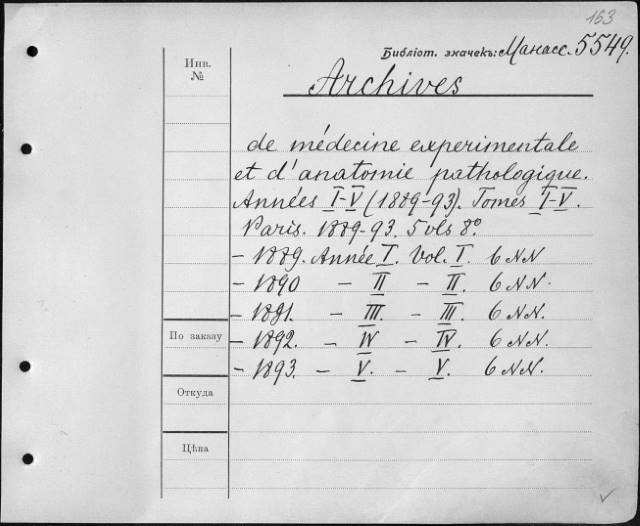 153
Библіот. значекъ: Манасс. 5549.
Инв.
№
Archives
de médecine experimentale
et d'anatomie pathologique.
Années I-V (1889-93). Tomes I-V.
Paris. 1889-93. 5 vls 8º.
- 1889. Année I. Vol. I. 6 NN
- 1890 - II - II. 6 NN.
- 1891. - III. - III. 6 NN.
По заказу
- 1892. - IV - IV. 6 NN.
- 1893. - V. - V. 6 NN.
Откуда
Цѣна